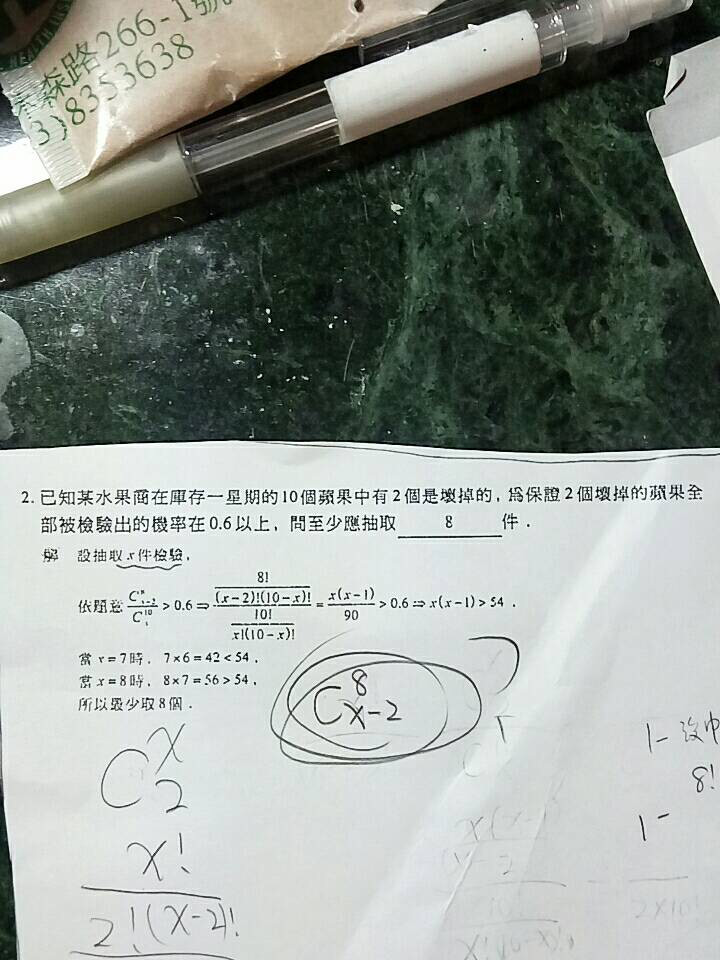 HEALTH INS
森路266-1號
3)8353638
2. 已知某水果商在庫存一星期的10個蘋果中有2個是壞掉的，為保證2個壞掉的蘋果全
部被檢驗出的機率在0.6以上，問至少應抽取 8 件．
解 設抽取x件檢驗，
依題意 C^8_{x-2}/C^{10}_x > 0.6 ⇒ (8!/((x-2)!(10-x)!))/(10!/(x!(10-x)!)) = x(x-1)/90 > 0.6 ⇒ x(x-1) > 54．
當x=7時，7×6=42<54，
當x=8時，8×7=56>54，
所以最少取8個．
C^8_{x-2}
C^x_2
x!
2!(x-2)!
1- 沒中
8!
1-
2×10!